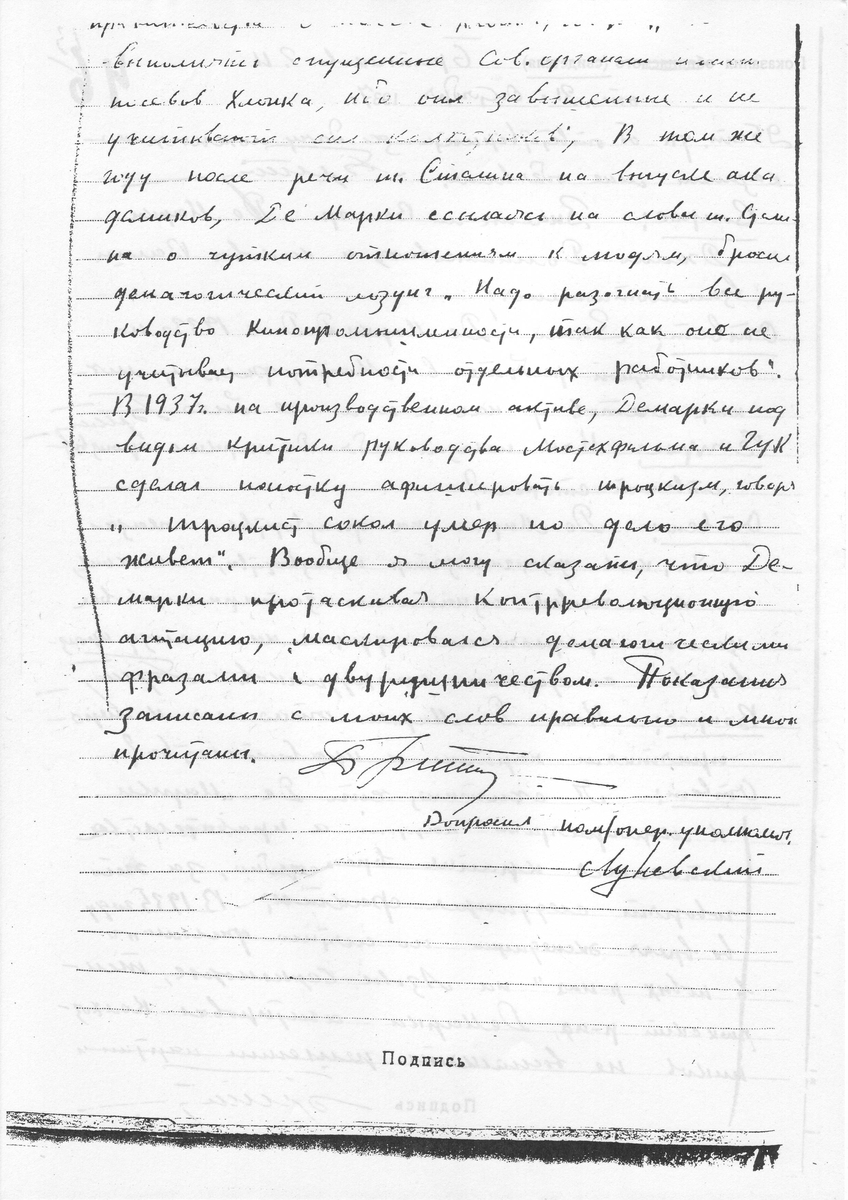 выполнять спущенные Сов. органами планы
посевов хлопка, что они завышенные и не
учитывают сил колхозников", В том же
году после речи т. Сталина на выпуске ака
демиков, Де Марки ссылаясь на слова т. Стали-
на о чутком отношениям к людям, бросил
демагогический лозунг „Надо разогнать все ру-
ководство Кинопромышленности, так как оно не
учитывает потребности отдельных работников".
В 1937г. на производственном активе, Демарки под
видом критики руководства Мостехфильма и ГУК
сделал попытку афишировать троцкизм, говоря
„ троцкист сокол умер но дело его
живет". Вообще я могу сказать, что Де-
марки протаскивая контрреволюционную
агитацию, маскировался демагогическими
фразами и двурушничеством. Показания
записаны с моих слов правильно и мною
прочитаны.
Допросил пом/опер. уполномоч.
Подпись